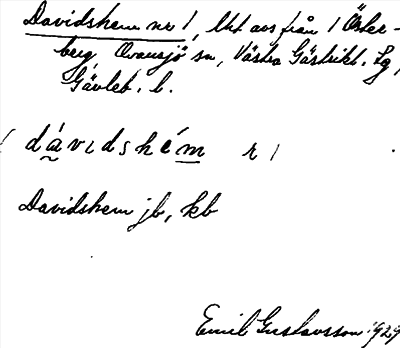 Davidshem nr 1, lht avs från 1 Öster-
berg, Ovansjö sn, Västra Gästrikl. Lg,
Gävleb. l.
dávιdshém r 1
Davidshem jb, kb
Emil Gustavsson 1929